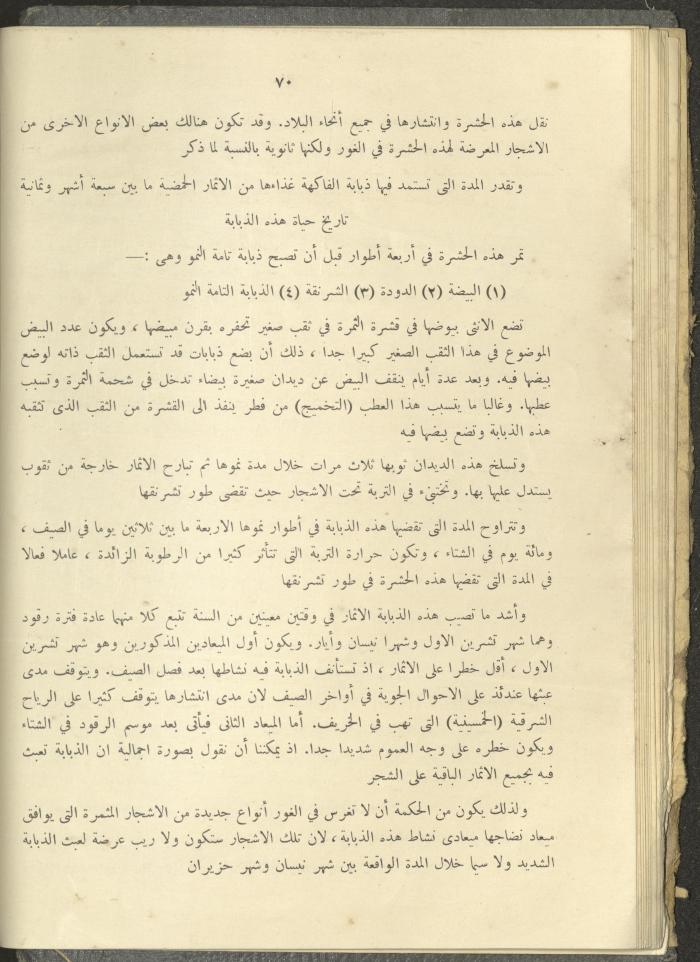 ٧٠
نقل هذه الحشرة وانتشارها في جميع أنحاء البلاد. وقد تكون هنالك بعض الانواع الاخرى من
الاشجار المعرضة لهذه الحشرة في الغور ولكنها ثانوية بالنسبة لما ذكر
وتقدر المدة التى تستمد فيها ذبابة الفاكهة غذاءها من الاثمار الحمضية ما بين سبعة أشهر وثمانية
تاريخ حياة هذه الذبابة
تمر هذه الحشرة في أربعة أطوار قبل أن تصبح ذبابة تامة النمو وهى :—
(١) البيضة (٢) الدودة (٣) الشرنقة (٤) الذبابة التامة النمو
تضع الانثى بيوضها في قشرة الثمرة في ثقب صغير تحفره بقرن مبيضها ، ويكون عدد البيض
الموضوع في هذا الثقب الصغير كبيرا جدا ، ذلك أن بضع ذبابات قد تستعمل الثقب ذاته لوضع
بيضها فيه. وبعد عدة أيام ينقف البيض عن ديدان صغيرة بيضاء تدخل في شحمة الثمرة وتسبب
عطبها. وغالبا ما يتسبب هذا العطب (التخميج) من فطر ينفذ الى القشرة من الثقب الذى تثقبه
هذه الذبابة وتضع بيضها فيه
وتسلخ هذه الديدان ثوبها ثلاث مرات خلال مدة نموها ثم تبارح الاثمار خارجة من ثقوب
يستدل عليها بها. وتختبىء في التربة تحت الاشجار حيث تقضى طور تشرنقها
وتتراوح المدة التى تقضيها هذه الذبابة في أطوار نموها الاربعة ما بين ثلاثين يوما في الصيف ،
ومائة يوم في الشتاء ، وتكون حرارة التربة التى تتأثر كثيرا من الرطوبة الزائدة ، عاملا فعالا
في المدة التى تقضها هذه الحشرة في طور تشرنقها
وأشد ما تصيب هذه الذبابة الاثمار في وقتين معينين من السنة تتبع كلا منهما عادة فترة رقود
وهما شهر تشرين الاول وشهرا نيسان وأيار. ويكون أول الميعادين المذكورين وهو شهر تشرين
الاول ، أقل خطرا على الاثمار ، اذ تستأنف الذبابة فيه نشاطها بعد فصل الصيف. ويتوقف مدى
عبثها عندئذ على الاحوال الجوية في أواخر الصيف لان مدى انتشارها يتوقف كثيرا على الرياح
الشرقية (الخمسينية) التى تهب في الخريف. أما الميعاد الثانى فيأتى بعد موسم الرقود في الشتاء
ويكون خطره على وجه العموم شديدا جدا. اذ يمكننا أن نقول بصورة اجمالية ان الذبابة تعبث
فيه بجميع الاثمار الباقية على الشجر
ولذلك يكون من الحكمة أن لا تغرس في الغور أنواع جديدة من الاشجار المثمرة التى يوافق
ميعاد نضاجها ميعادى نشاط هذه الذبابة ، لان تلك الاشجار ستكون ولا ريب عرضة لعبث الذبابة
الشديد ولا سيما خلال المدة الواقعة بين شهر نيسان وشهر حزيران